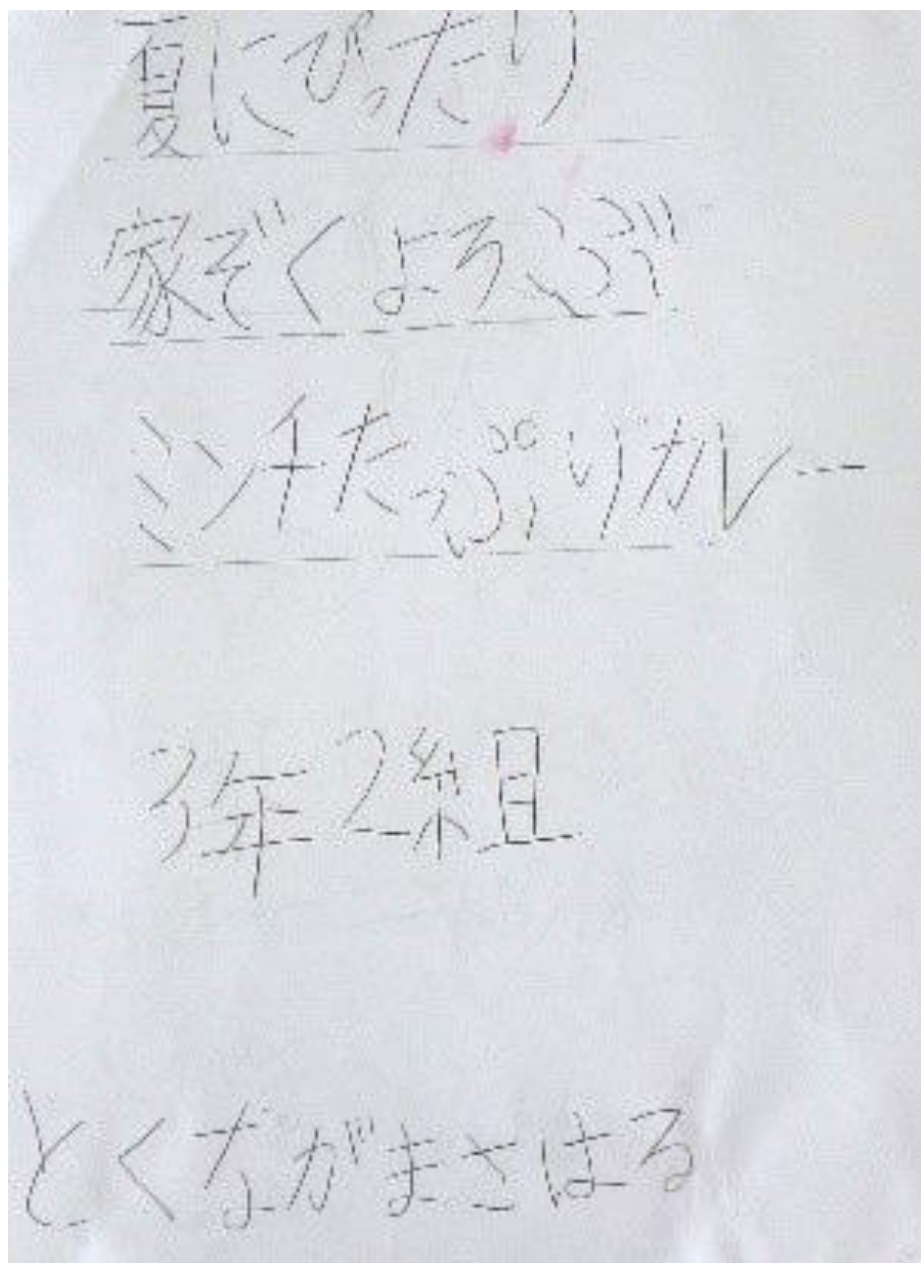 夏にぴったり
家ぞくよろぶ
ミンチたっぷりカレー
3年2組
とくながまさはる